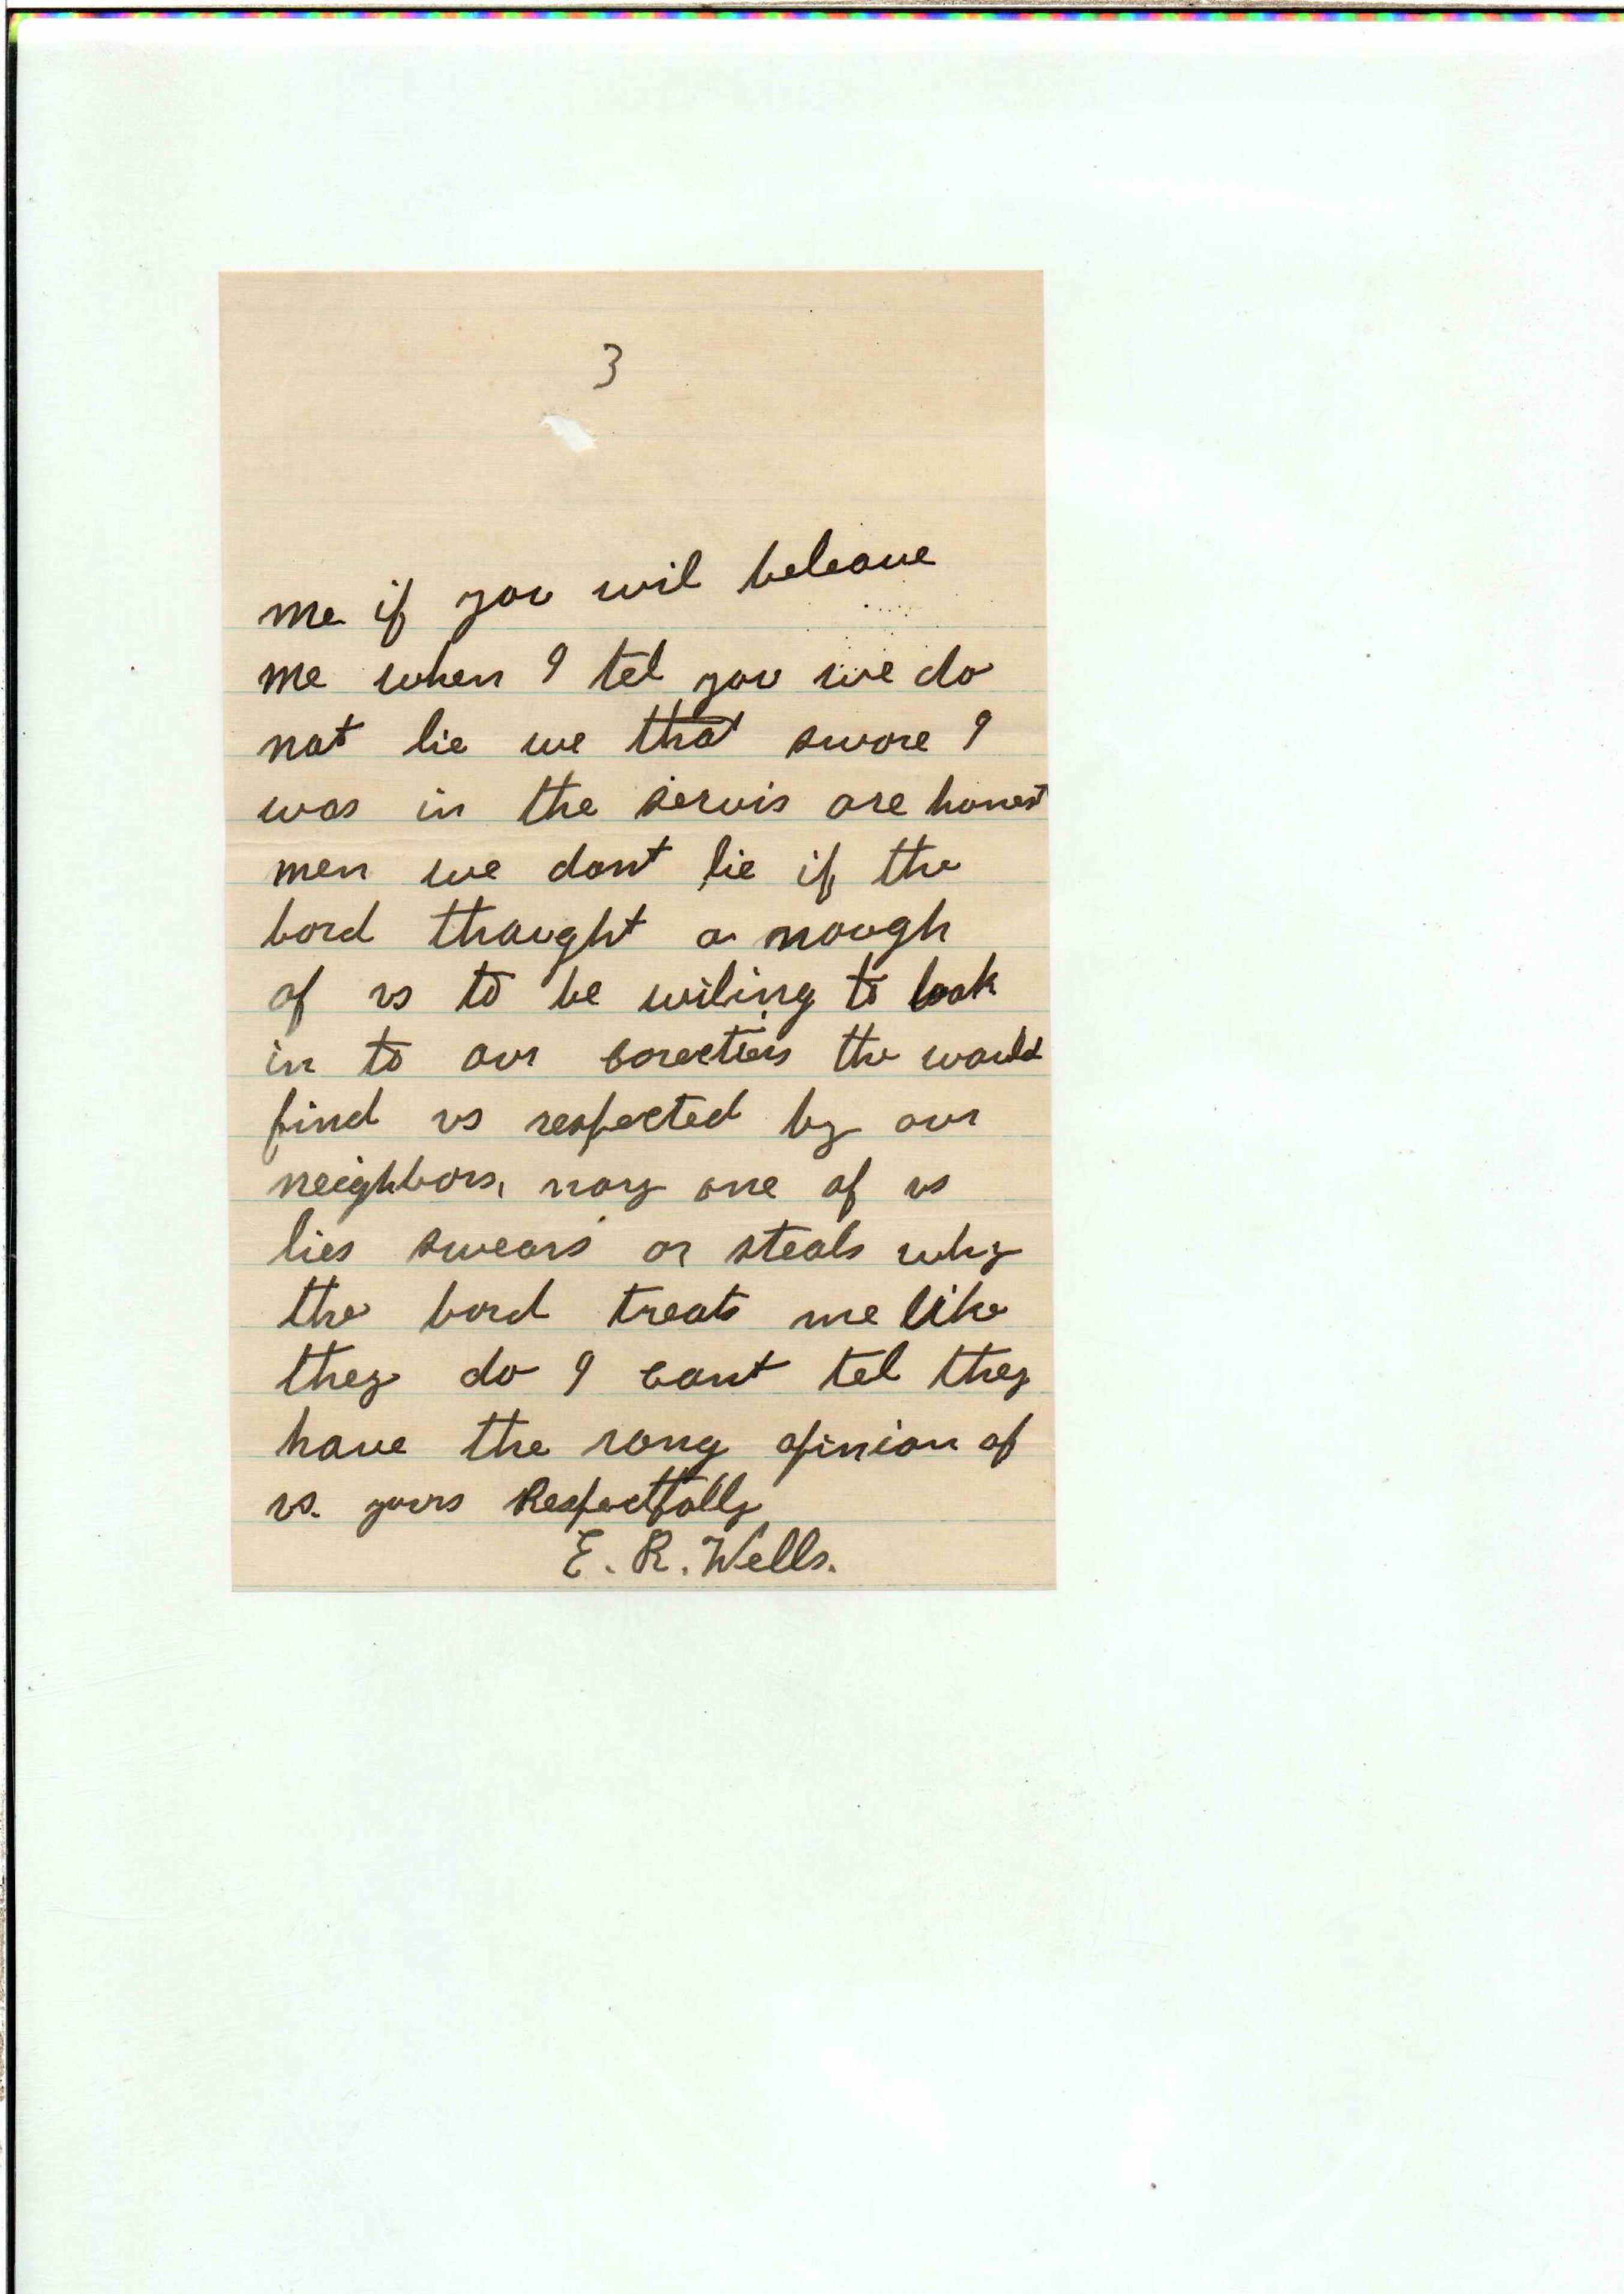 3
me if you wil beleave
me when I tel you we do
not lie we that swore I
was in the servis are honest
men we dont lie if the
bord thought a nough
of us to be wiling to look
in to our carecters the would
find us respected by our
neighbors, nary one of us
lies swears or steals why
the bord treats me like
they do I cant tel they
have the rong opinion of
us. yours Respectfully
E. R. Wells.